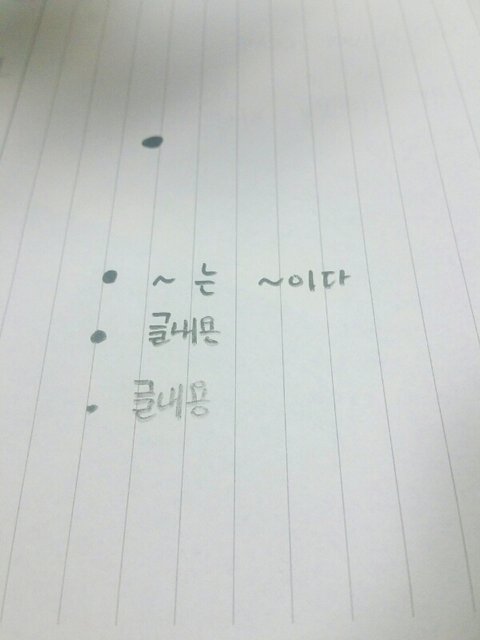 • 
• ~ 는 ~이다
• 글내용
• 글내용